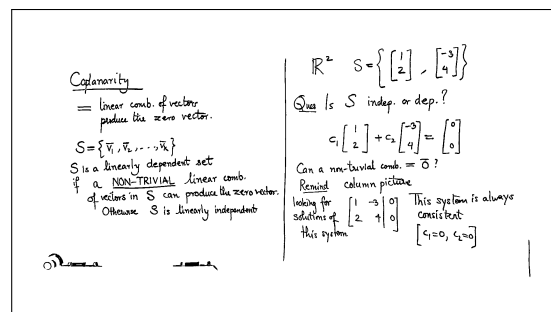 Coplanarity
= linear comb. of vectors
produce the zero vector.
S = { v̄₁, v̄₂, ..., v̄ₖ }
S is a linearly dependent set
if a NON-TRIVIAL linear comb.
of vectors in S can produce the zero vector.
Otherwise S is linearly independent
ℝ² S = { [1 2], [-3 4] }
Ques Is S indep. or dep.?
c₁ [1 2] + c₂ [-3 4] = [0 0]
Can a non-trivial comb. = 0̄ ?
Remind column picture
looking for solutions of this system
[1 -3 | 0
2 4 | 0]
This system is always
consistent
[c₁=0, c₂=0]